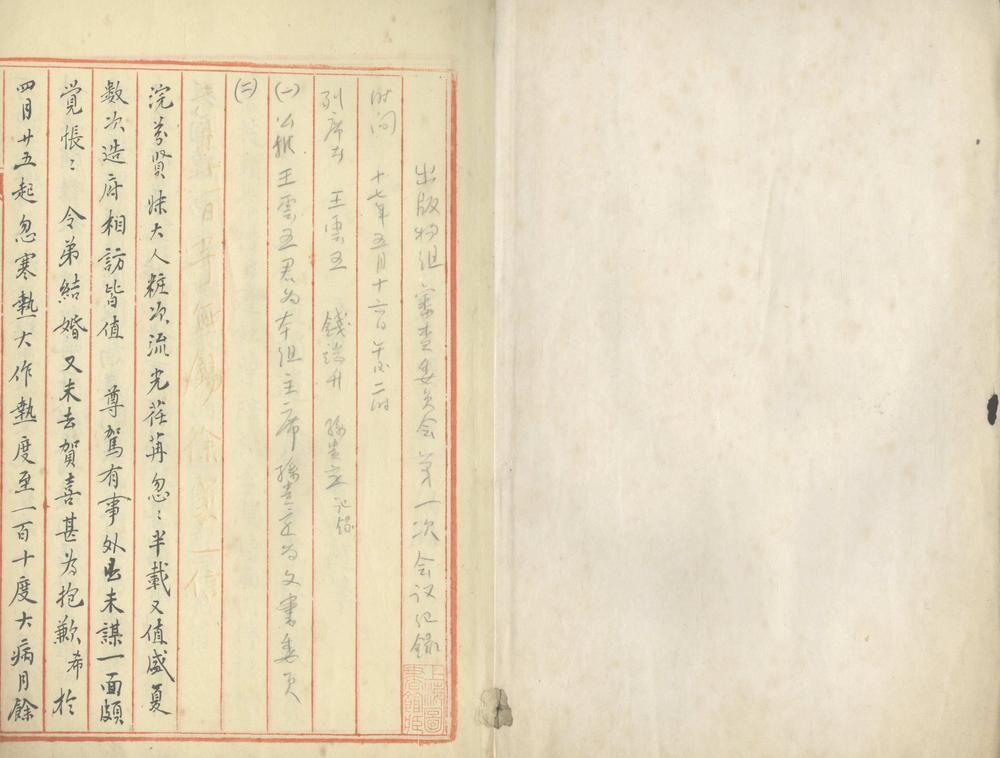 出版物组審查委员会第一次会议纪錄
时间 十七年五月十六日午后二时
列席者 王雲五 錢端升 孫 记錄
㈠公推王雲五君为本组主席孫 为文書委员
㈡
浣芬賢妹大人粧次流光荏苒忽〻半載又值盛夏
数次造府相訪皆值 尊駕有事外出未謀一面頗
覚悵〻 令弟結婚又未去賀喜甚为抱歉希於
四月廿五起忽寒熱大作熱度至一百十度大病月餘